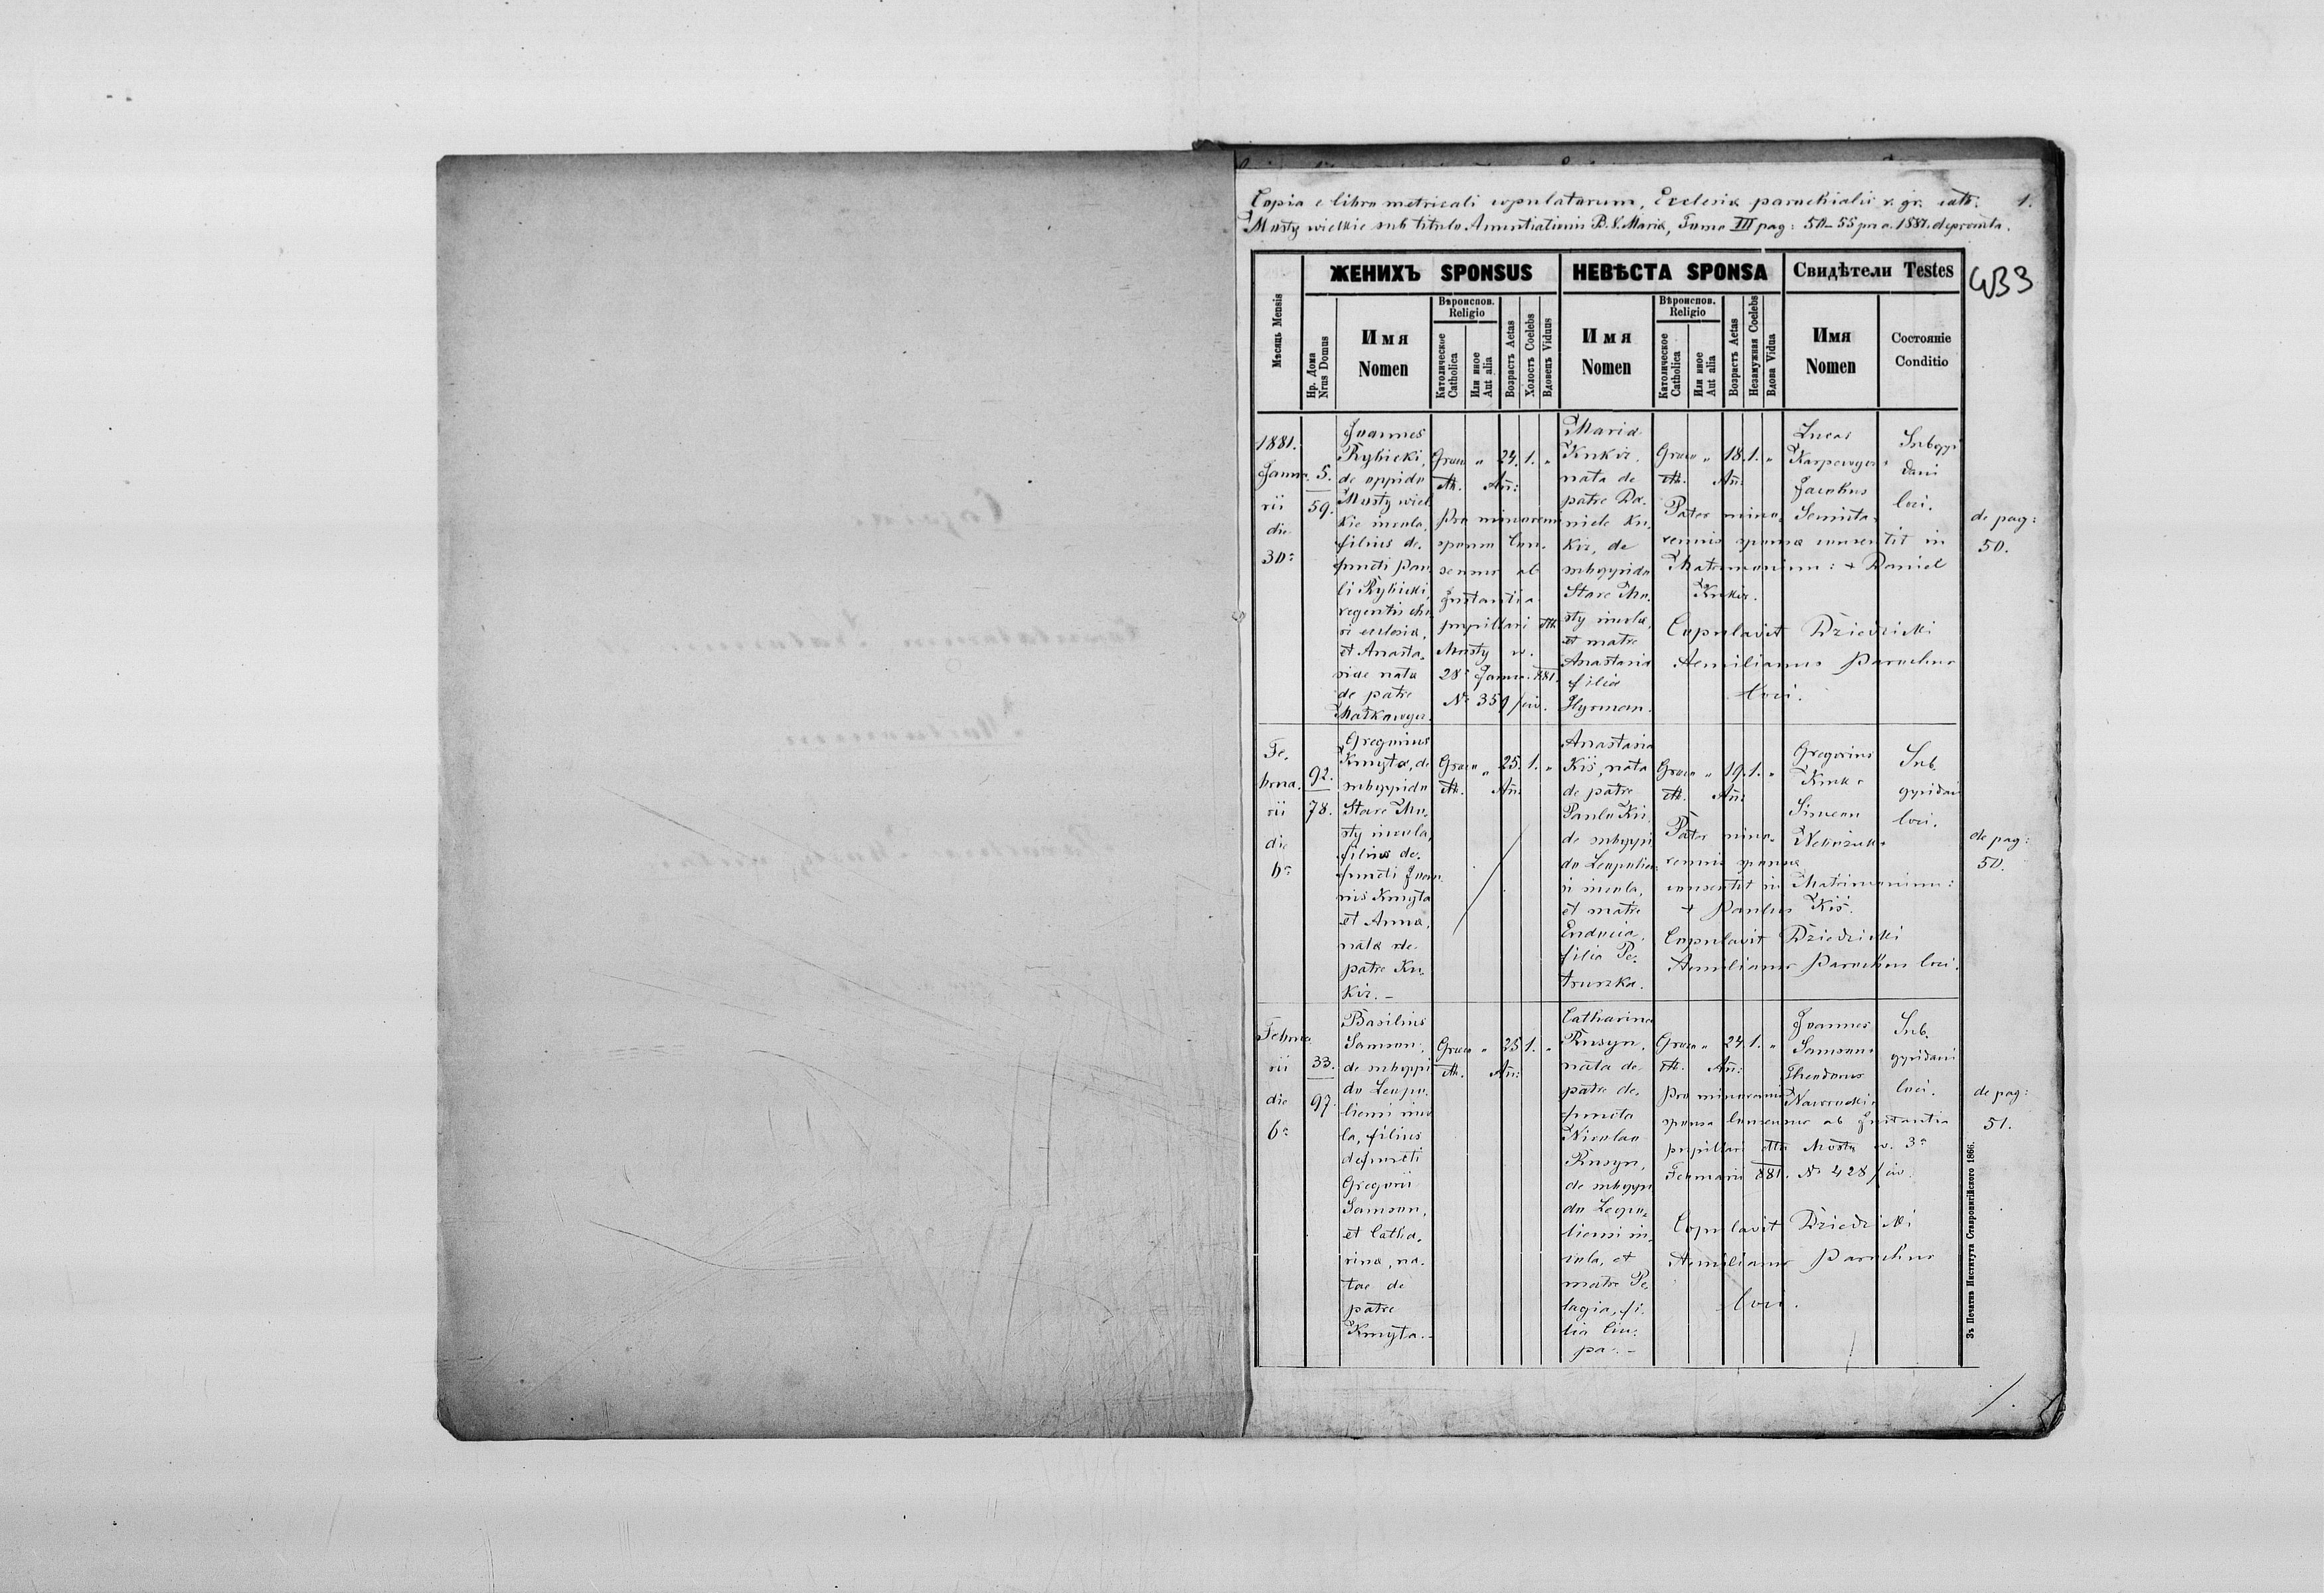 Copia e libro metricali copulatorum, Ecclesiæ parochialis r. gr. cath. 1.
Mosty wielkie sub titulo Annuntiationis B. V. Mariæ, Tomo III pag: 50–55 pro a. 1881. deprompta.
GB3
Мѣсяць Mensis
ЖЕНИХЪ SPONSUS
НЕВѢСТА SPONSA
Свидѣтели Testes
Нр. Дома
Nrus Domus
Имя
Nomen
Вѣроиспов.
Religio
Католическое
Catholica
Или иное
Aut alia
Возрастъ Aetas
Холостъ Coelebs
Вдовецъ Viduus
Имя
Nomen
Вѣроиспов.
Religio
Католическое
Catholica
Или иное
Aut alia
Возрастъ Aetas
Незамужная Coelebs
Вдова Vidua
Имя
Nomen
Состояніе
Conditio
1881.
Janua-
rii
die
30ª
5.
59.
Joannes
Rybicki,
de oppido
Mosty wiel-
kie incola,
filius de-
functi Pau-
li Rybicki,
regentis cho-
ri ecclesiæ,
et Anasta-
siae natæ
de patre
Græco " 24. 1. "
cth. An:
Pro minorenni
sponso Con-
sensus ab
Instantia
pupillari dtto
Mosty w.
28ª Janua. 881.
Nº 359/civ.
Maria
Kukiz,
nata de
patre Da-
niele Ku-
kiz, de
suboppido
Stare Mo-
sty incola,
et matre
Anastasia
filia
Hyrman.
Græco " 18. 1. "
cth. An:
Pater mino-
rennis sponsæ consentit in
Matrimonium: + Daniel
Kukiz.
Copulavit Dziedzicki
Aemilianus Parochus
loci.
Lucas
Jacobus
Semuta
Suboppi
dani
loci.
de pag:
50.
Fe-
brua-
rii
die
6ª
92.
78.
Gregorius
Kmyta, de
suboppido
Stare Mo-
sty incola,
filius de-
functi Joan-
nis Kmyta
et Annæ,
natæ de
patre Ku-
kiz. –
Græco " 25. 1. "
cth. An:
Anastasia
Kiś, nata
de patre
Paulo Kiś,
de suboppi
do Leopolien-
si incola,
et matre
Eudocia,
filia Pe-
truszka.
Græco " 19. 1. "
cth. An:
Pater mino-
rennis sponsæ
consentit in Matrimonium:
+ Paulus Kiś.
Copulavit Dziedzicki
Aemilianus Parochus loci.
Gregorius
Simeon
Sub-
oppidani
loci.
de pag:
50.
Februa-
rii
die
6ª
33.
97.
Basilius
Samson,
de suboppi
do Leopo-
liensi inco
la, filius
defuncti
Gregorii
Samson,
et Catha-
rinæ, na-
tae de
patre
Kmyta. –
Græco " 25 1. "
cth. An:
Catharina
Rusyn,
nata de
patre de-
functo
Nicolao
Rusyn,
de suboppi
do Leopo-
liensi in-
cola, et
matre Pe-
lagia, fi-
lia Ciu-
pa. –
Græco " 24 1. "
cth. An:
Pro minorenni
sponsa Consensus ab Instantia
pupillari dtto Mosty w. 3ª
Februarii 881. Nº 428/civ.
Copulavit Dziedzicki
Aemilianus Parochus
loci.
Joannes
Samson
Theodorus
Nawrocki
Sub-
oppidani
loci.
de pag:
51.
Зъ Печатнѣ Института Ставропигійского 1866.
1.